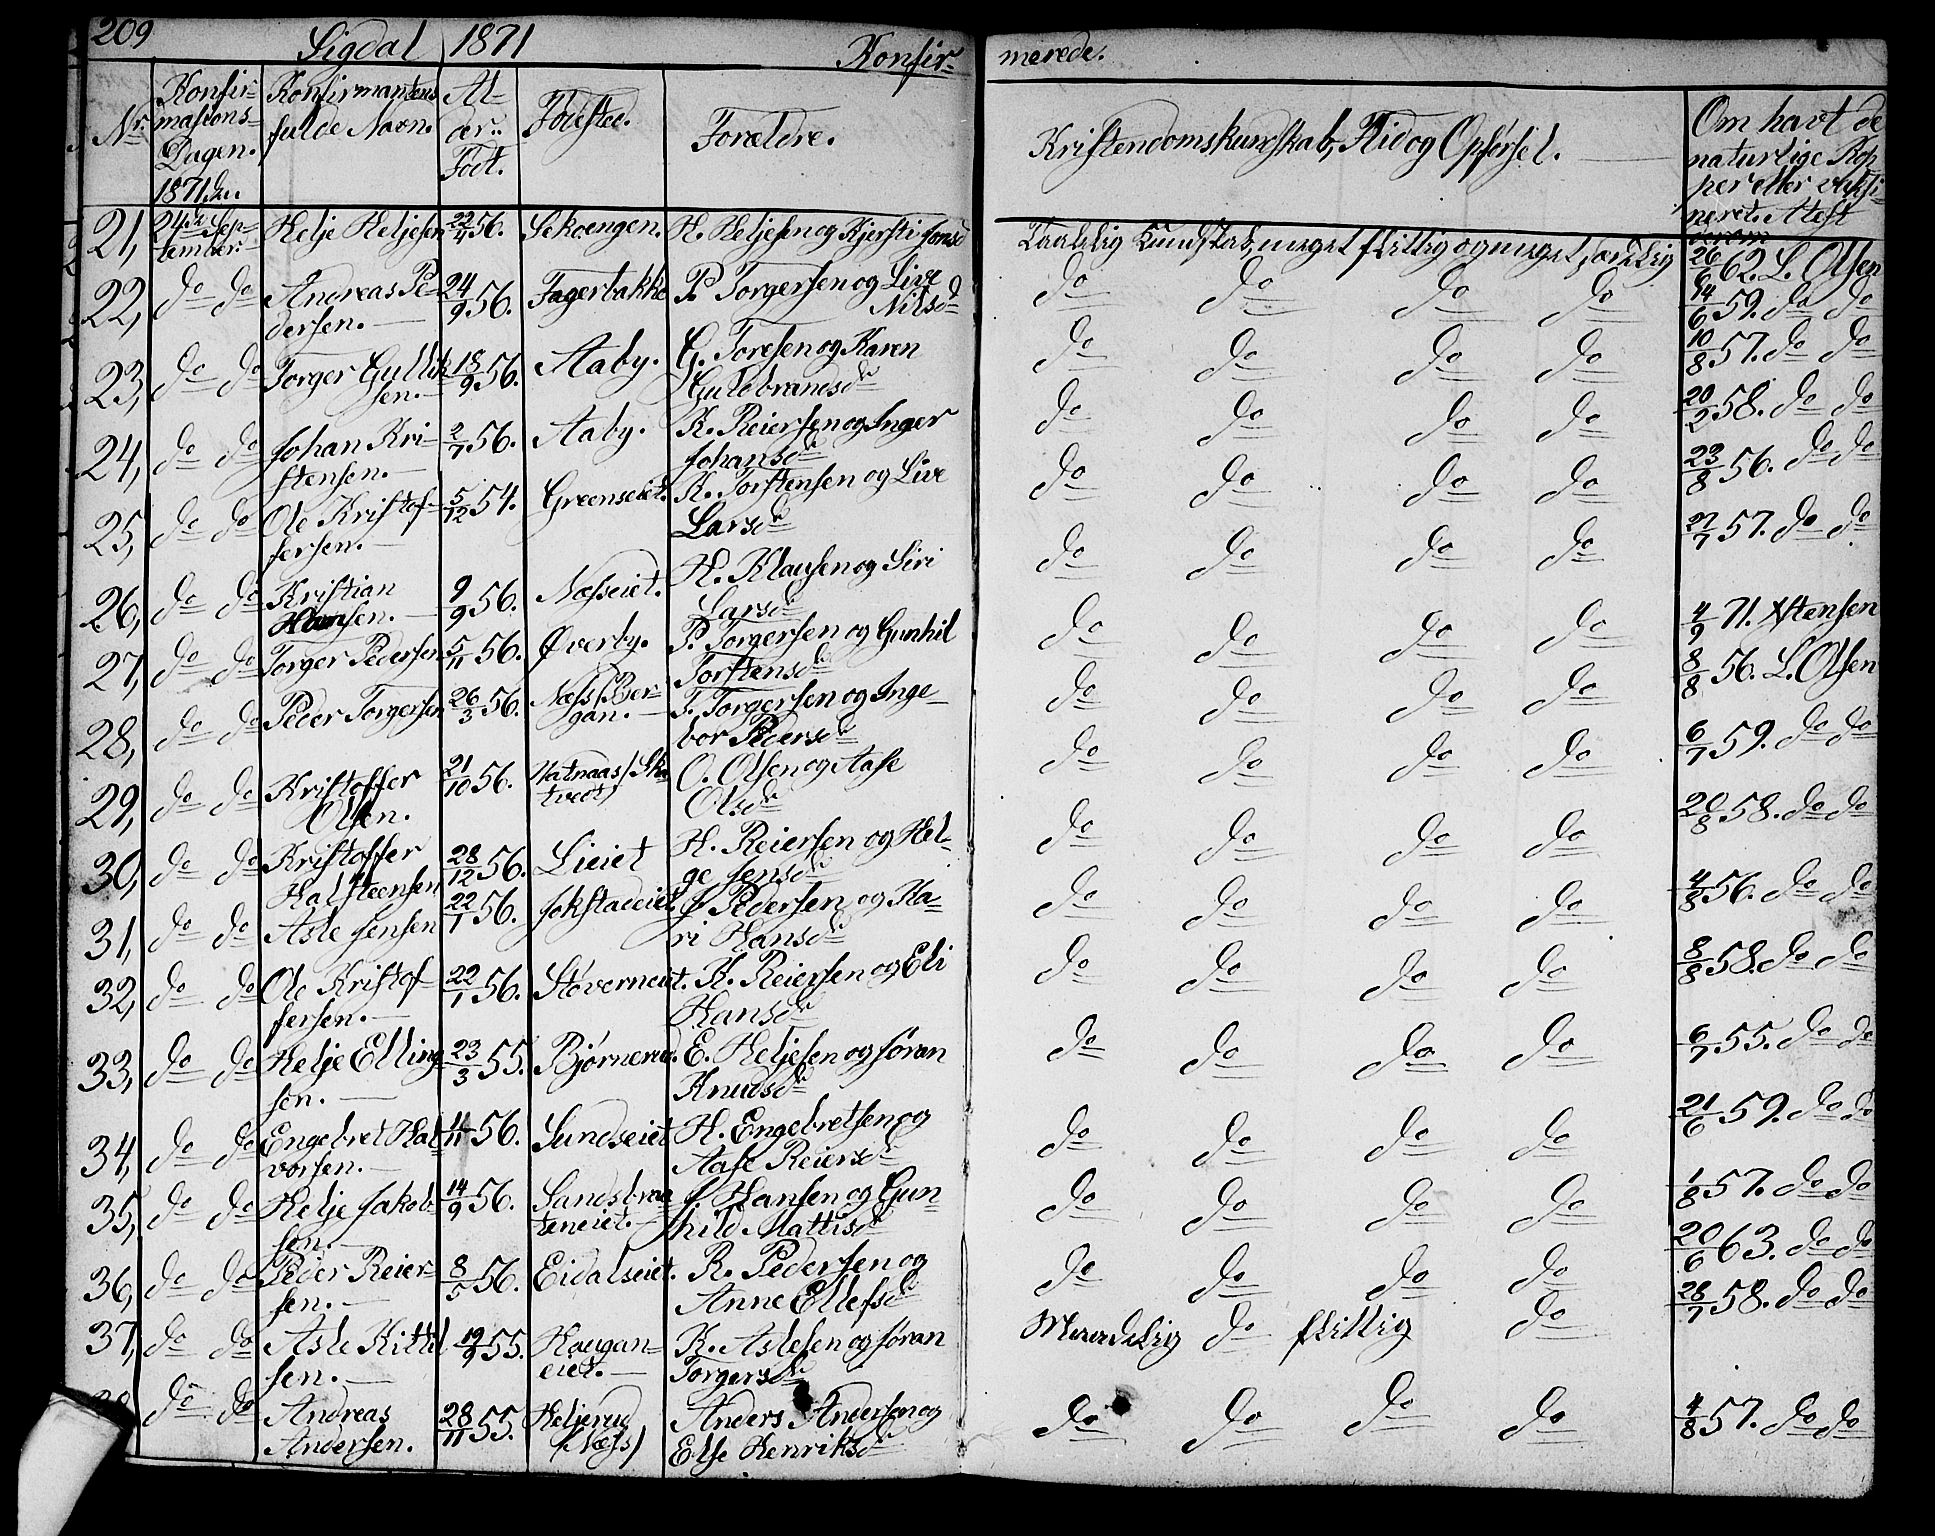 209 Sigdal 1871 Konfir- merede.
Nr. Konfir-mations-Dagen. 1871 den Konfirmantens fulde Navn. Al-der. Født. Fødested. Forældre. Kristendomskundskab, Flid og Opførsel. Om havt de naturlige Kop-per eller vaksi-neret. Attest derom
21, 24de Sep-tember. Helje Heljesen 22/4 56. Sekoengen. H. Heljesen og Kjersti Jonsd Taalelig Kundskab, meget flittig og meget sædelig 26/6 62. L. Olsen
22, do do Andreas Pe-dersen. 24/9 56. Fagerbakke P. Torgersen og Live Nilsd do do do do 14/6 59. do do
23, do do Torger Gullik-sen. 18/9 56. Aaby. G. Toresen og Karen Guldbrandsd do do do do 10/8 57. do do
24, do do Johan Kri-stensen. 2/7 56. Aaby. K. Reiersen og Inger Johansd do do do do 20/2 58. do do
25, do do Ole Kristof-fersen. 5/12 54. Greenseiet. K. Torstensen og Live Larsd do do do do 23/8 56. do do
26, do do Kristian Hansen. 9/9 56. Næsseiet. H. Klausen og Siri Larsd do do do do 27/7 57. do do
27, do do Torger Pedersen 5/11 56. Øverby. P. Torgersen og Gunhil Torstensd do do do do 4/9 71. Xstensen
28, do do Peder Torgersen 26/3 56. Næss/Ber-gan. T. Torgersen og Inge-bor Pedersd do do do do 8/8 56. L. Olsen
29, do do Kristoffer Olsen. 21/10 56. Natnaas/Ska tvedt) O. Olsen og Aase Olsd do do do do 6/7 59. do do
30, do do Kristoffer Halsteensen 28/12 56. Lieiet H. Reiersen og Hel-ge Jensd do do do do 20/8 58. do do
31, do do Asle Jensen 22/1 56. Jokstadeiet. J. Pedersen og Ka-ri Hansd do do do do 4/8 56. do do
32, do do Ole Kristof-fersen. 22/1 56. Støverneiet. K. Reiersen og Eli Hansd do do do do 8/8 58. do do
33, do do Helje Elling-sen. 23/3 55. Bjørnerud. E. Heljesen og Jøran Knudsd do do do do 6/7 55. do do
34, do do Engebret Hal-vorsen. 4/11 56. Sundseiet H. Engebretsen og Aase Reiersd do do do do 21/6 59. do do
35, do do Helje Jakob-sen. 14/9 56. Sandsbraa teneiet. J. Hansen og Gun-hild Mattisd do do do do 1/8 57. do do
36, do do Peder Reier-sen. 8/5 56. Eidalseiet. R. Pedersen og Anne Ellefsd do do do do 20/6 63. do do
37, do do Asle Kittel sen. 19/9 55. Haugan-eiet. K. Aslesen og Jøran Torgersd Maadelig do flittig do 28/7 58. do do
do do Andreas Andersen. 28/11 55. Heljerud (Næss) Anders Andersen og Else Henriksd do do do do 4/8 57. do do